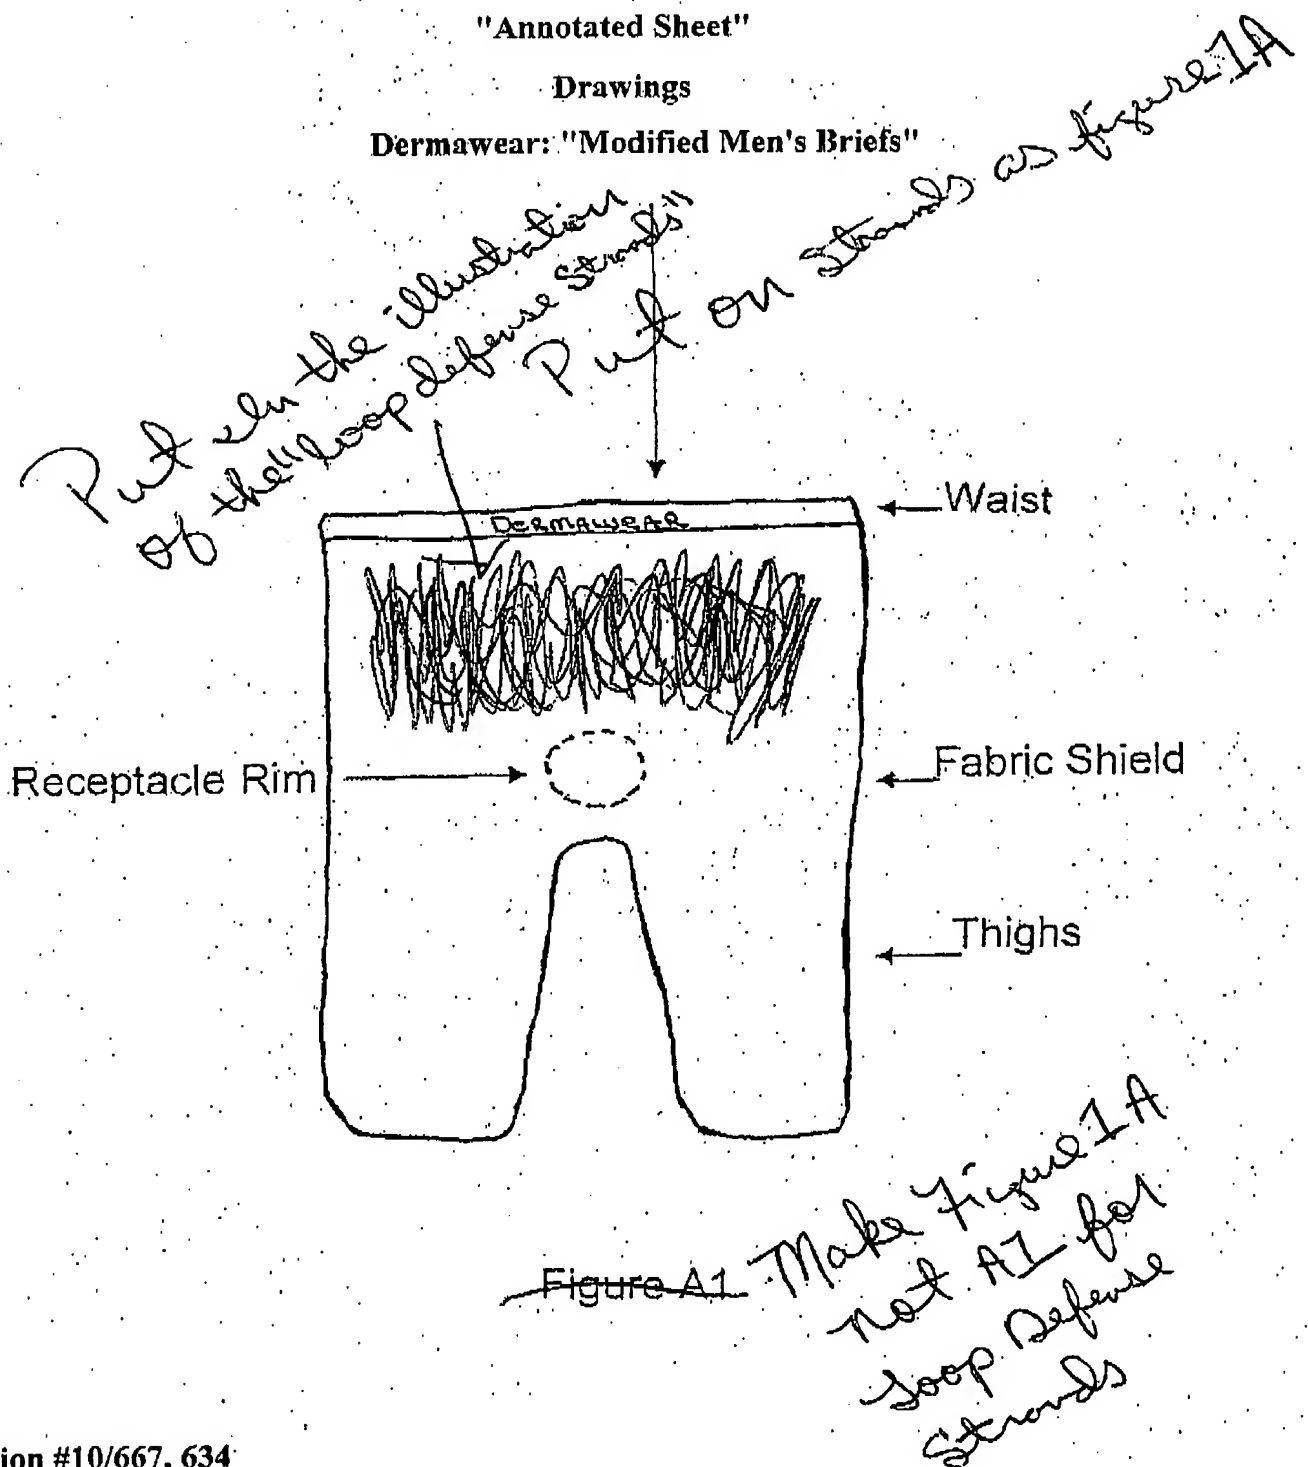 "Annotated Sheet"
Drawings
Dermawear: "Modified Men's Briefs"
Put in the illustration
of the "loop defense Strands"
Put on Strands as figure 1A
DERMAWEAR
Waist
Receptacle Rim
Fabric Shield
Thighs
Figure A1
Make Figure 1A
not A1 for
Loop Defense
Strands
ion #10/667, 634